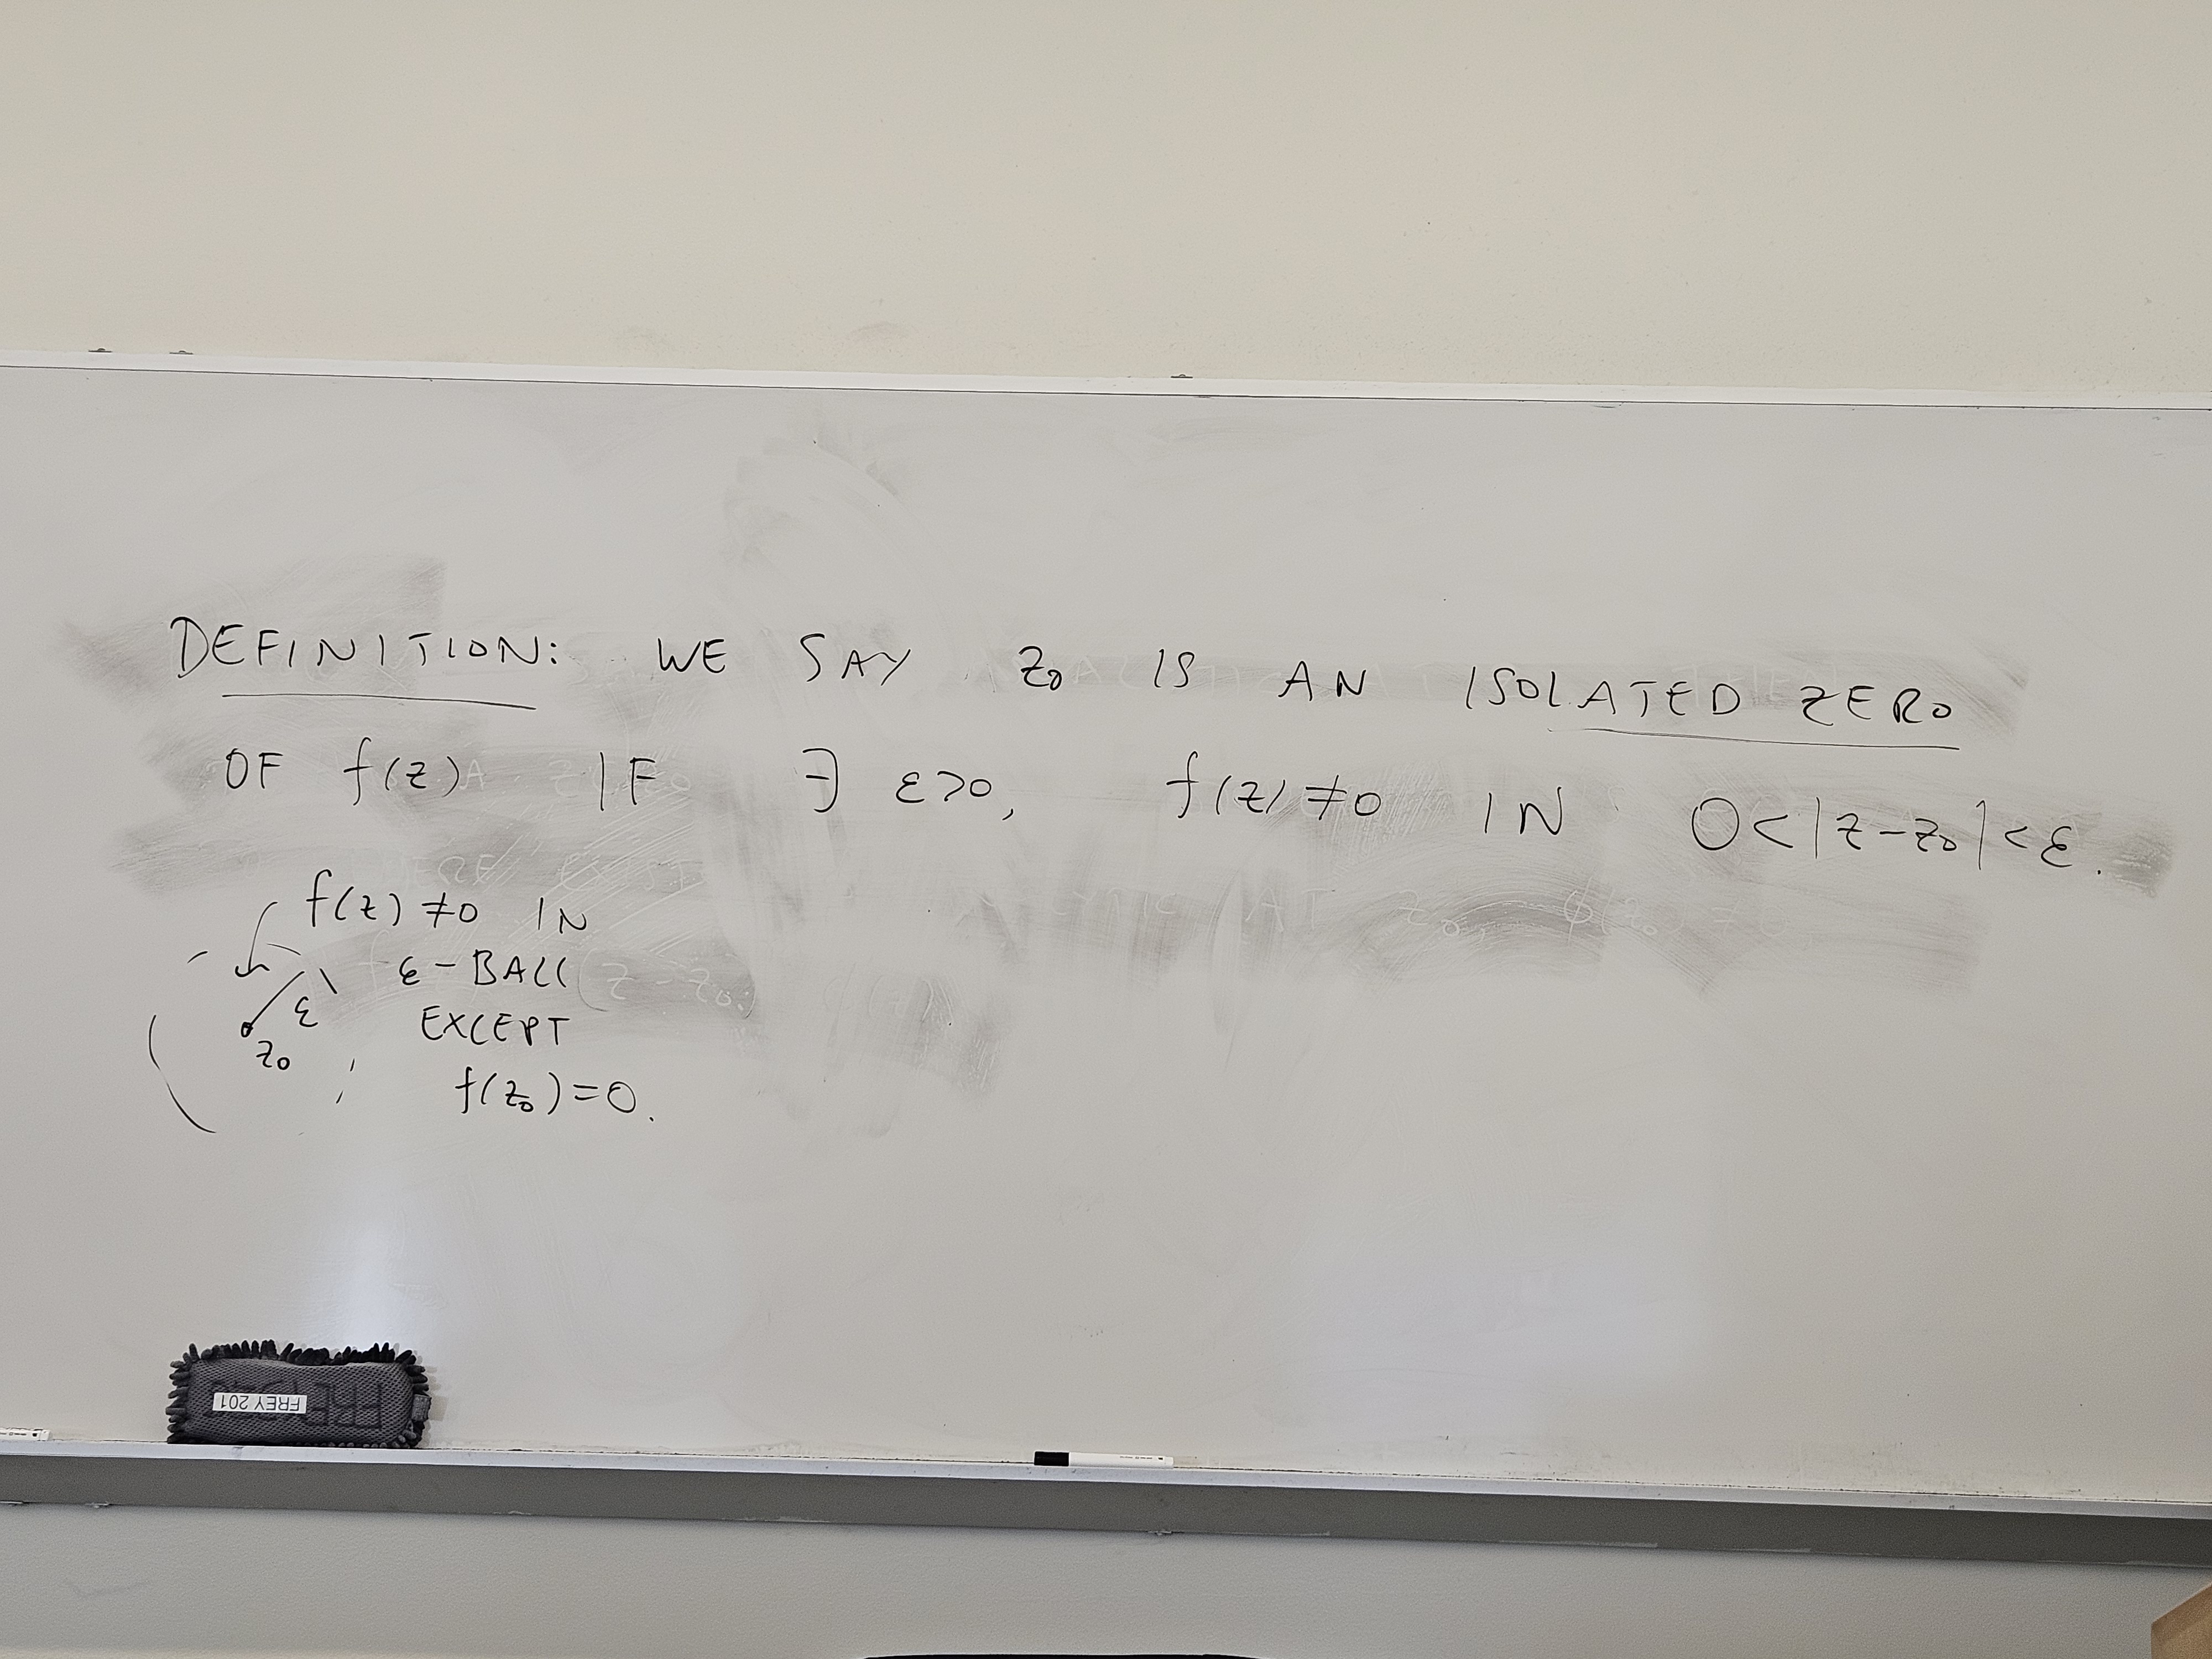 DEFINITION: WE SAY z₀ IS AN ISOLATED ZERO
OF f(z) IF ∃ ε>0, f(z)≠0 IN 0<|z-z₀|<ε.
f(z)≠0 IN
ε-BALL
EXCEPT
f(z₀)=0.
ε
z₀
FREY 201